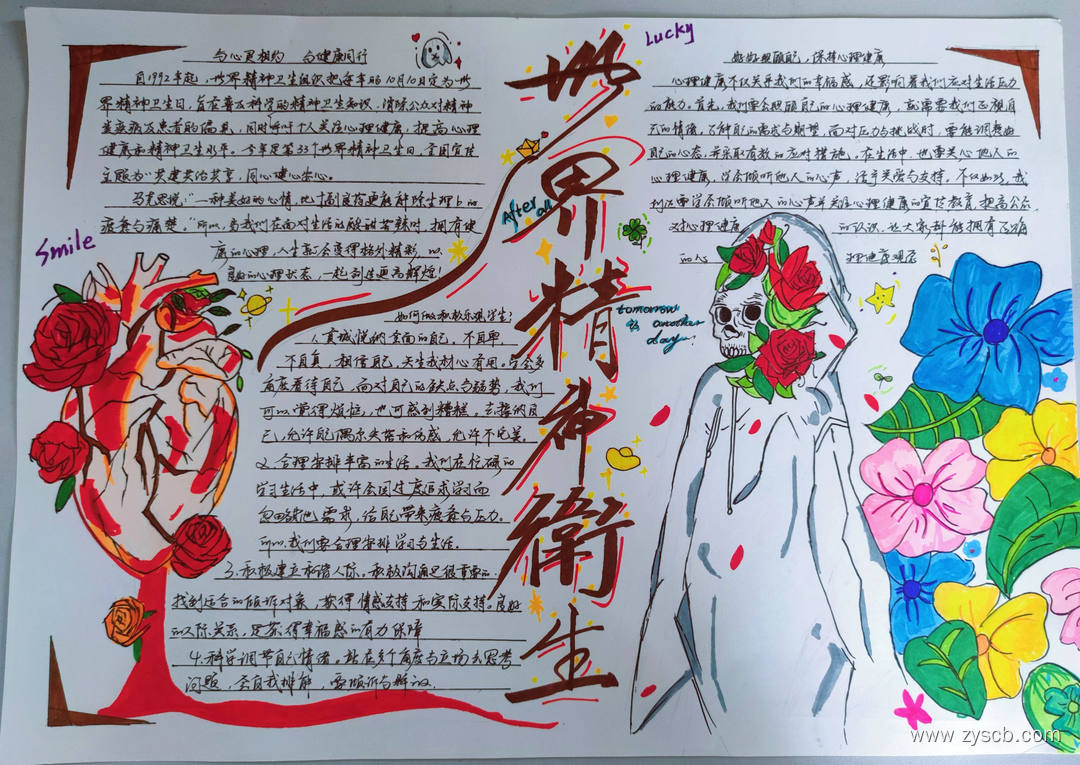 世界精神衛生
Lucky
Smile
After all
tomorrow is another day
与心灵相约 与健康同行
自1992年起，世界精神卫生组织把每年的10月10日定为世
界精神卫生日，旨在普及科学的精神卫生知识，消除公众对精神
类疾病及患者的偏见，同时呼吁个人关注心理健康，提高心理
健康和精神卫生水平。今年是第33个世界精神卫生日，全国宣传
主题为"共建共治共享，同心健心安心。
马克思说："一种美好的心情，比十副良药更能解除生理上的
疲惫与痛楚。"所以，当我们在面对生活的酸甜苦辣时，拥有健
康的心理，人生就会变得格外精彩，以
良好的心理状态，一起创造更高辉煌！
如何做积极乐观学生？
1、真诚悦纳全面的自己，不自卑
不自负，相信自己，天生我材必有用。学会多
角度看待自己，面对自己的缺点与弱势，我们
可以觉得烦恼，也可感到糟糕，去接纳自
己，允许自己偶尔失落和伤感，允许不完美。
2、合理安排丰富的生活。我们在忙碌的
学习生活中，或许会因过度追求学习而
忽略其他需求，给自己带来疲惫与压力。
所以，我们要合理安排学习与生活。
3、积极建立和谐人际。积极沟通是很重要的。
找到适合的倾诉对象，获得情感支持和实际支持。良好
的人际关系，是获得幸福感的有力保障
4、科学调节自己情绪。站在多个角度与立场去思考
问题，会自我排解，要倾诉与解放。
好好照顾自己，保持心理健康
心理健康不仅关乎我们的幸福感，还影响着我们应对生活压力
的能力。首先，我们要会照顾自己的心理健康，就需要我们正视自
己的情绪，了解自己的需求与期望，面对压力与挑战时，要能调整好
自己的心态，并采取有效的应对措施。在生活中，也要关心他人的
心理健康，学会倾听他人的心声，给予关爱与支持。不仅如此，我
们还要学会倾听他人的心声并关注心理健康的宣传教育，提高公众
对心理健康 的认识，让大家都能拥有正确
的心 理健康观念
www.zyscb.com